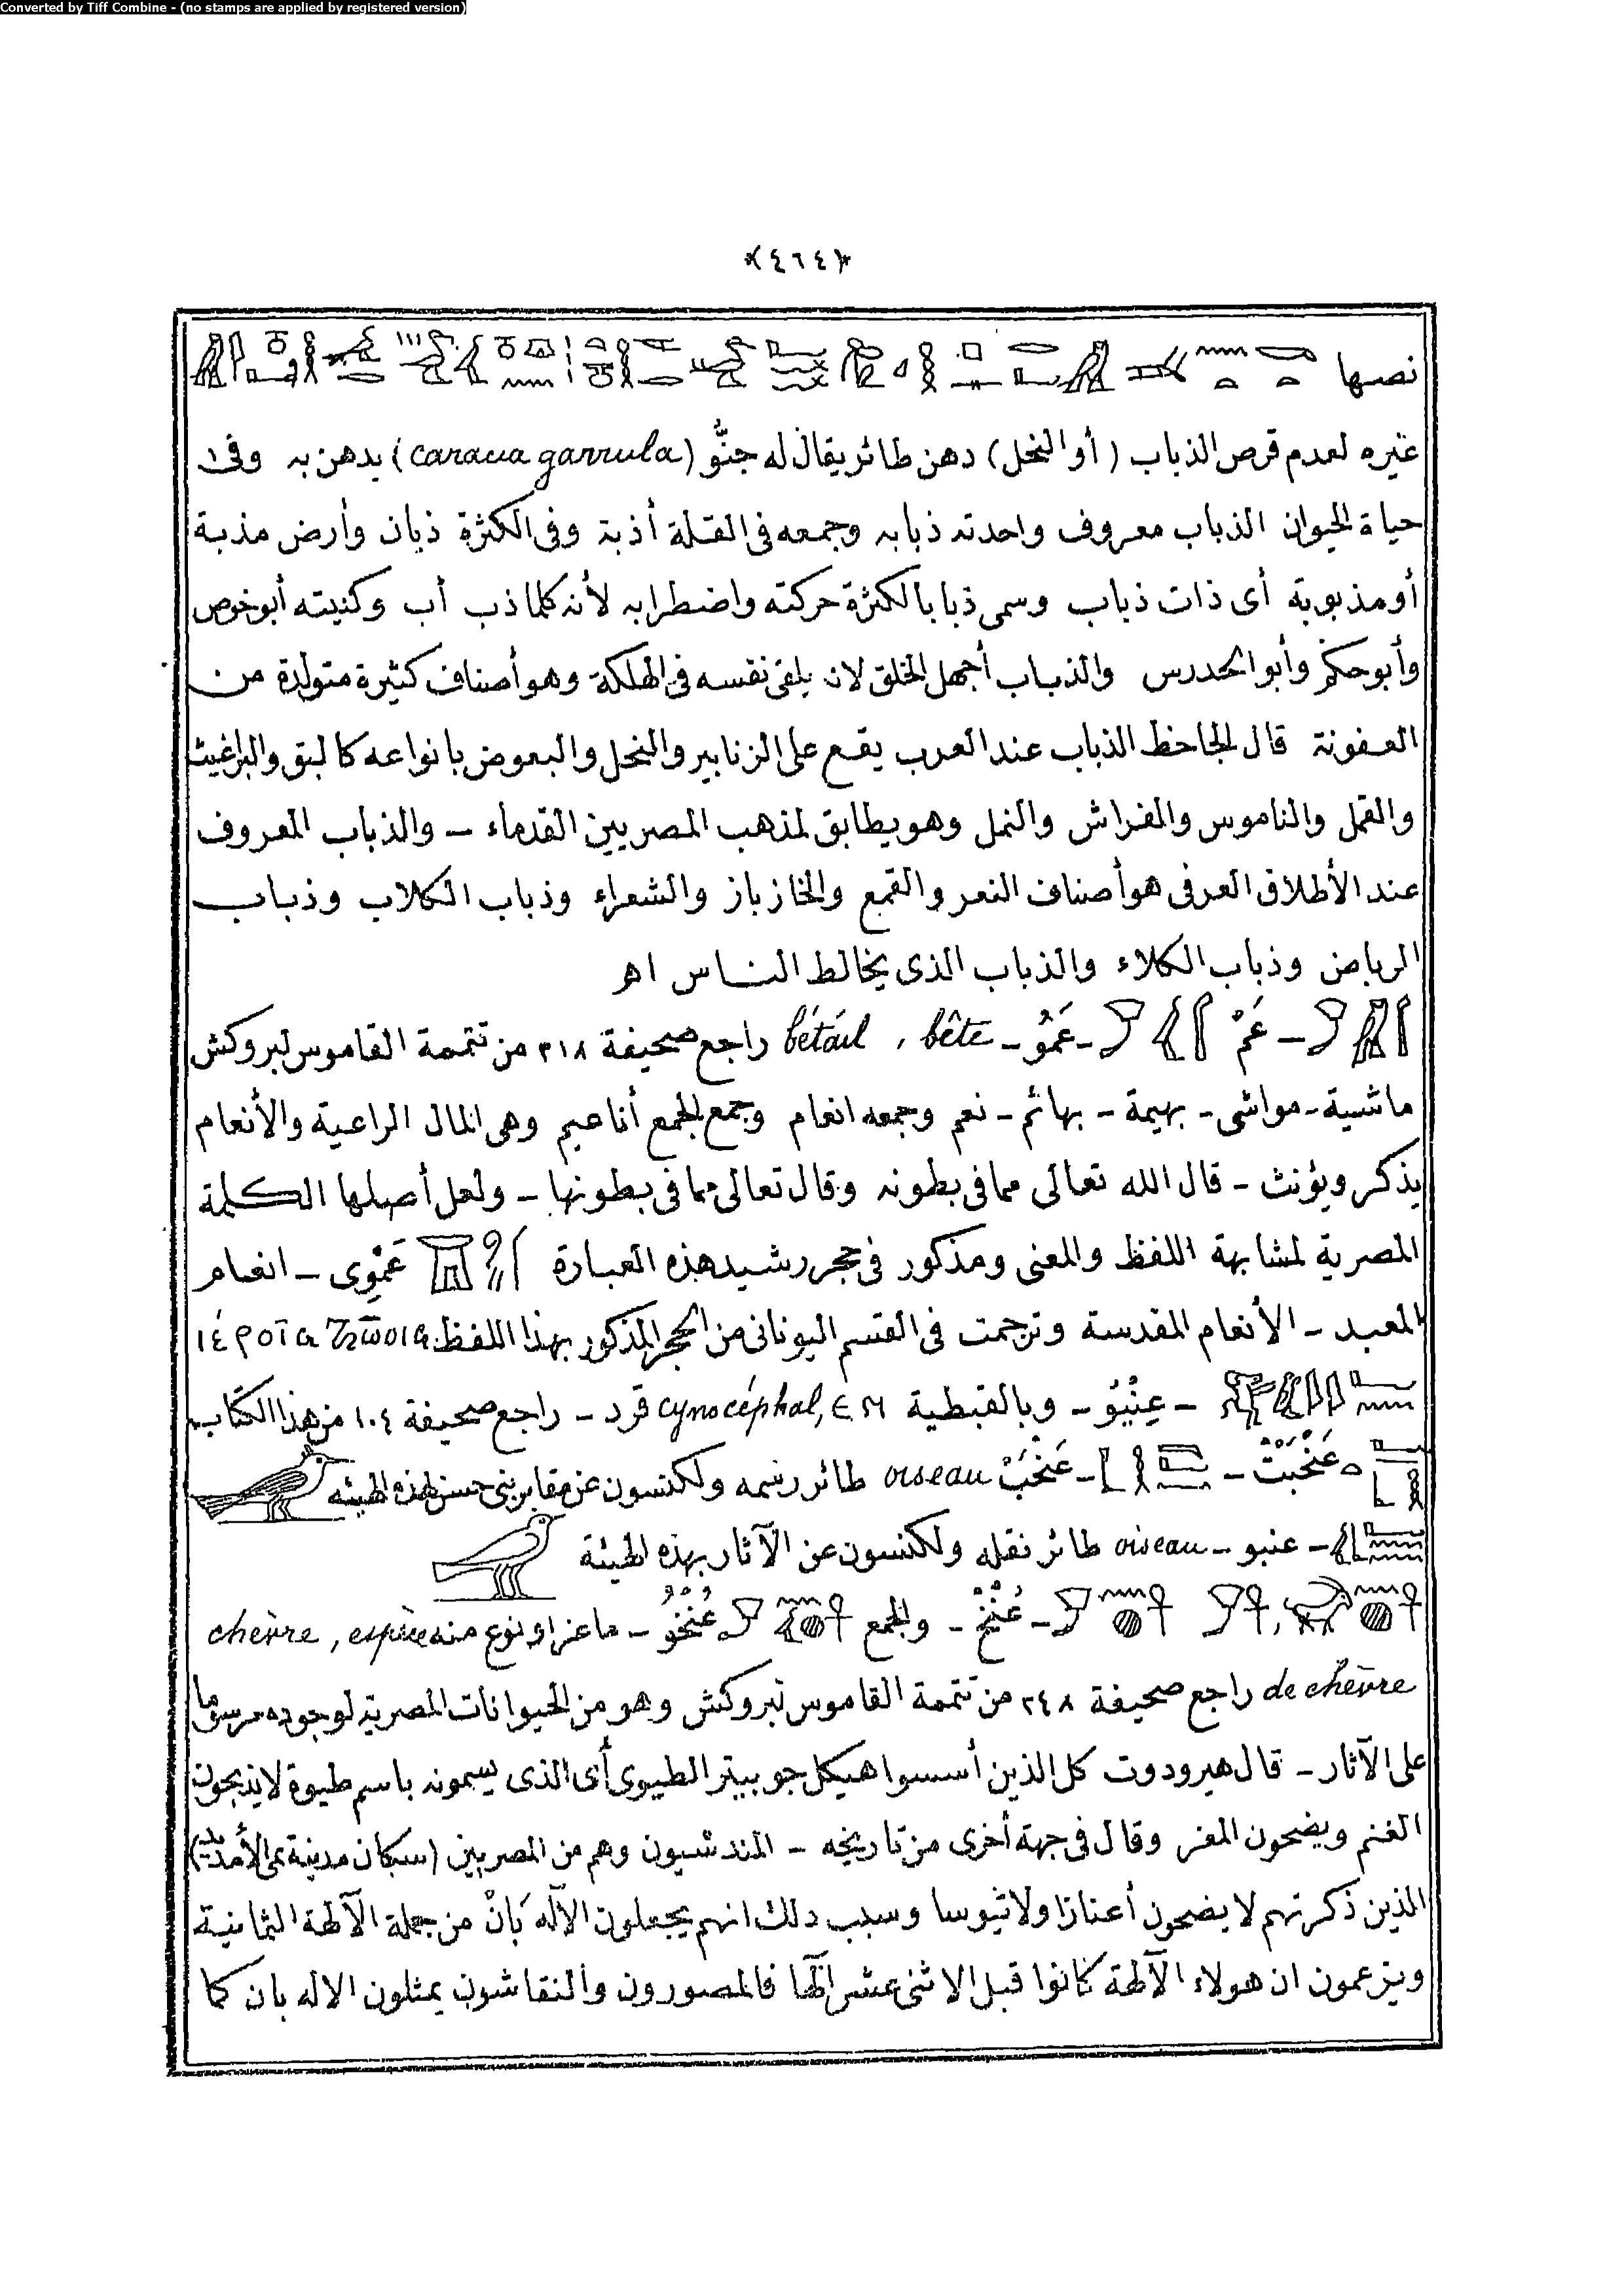 Converted by Tiff Combine - (no stamps are applied by registered version)
﴿٤٦٤﴾
نصها
غيره لعدم قرص الذباب (أو النحل) دهن طائر يقال له جنُّو (caraua garrula) يدهن به وفى
حياة الحيوان الذباب معروف واحدته ذبابه وجمعه فى القلة أذبة وفى الكثرة ذبان وأرض مذبة
أو مذبوبة أى ذات ذباب وسمى ذبابا لكثرة حركته واضطرابه لأنه كلما ذب أب وكنيته أبو
وأبو حكم وأبو الحدرس والذباب أجهل الخلق لانه يلقى نفسه فى الهلكة وهو أصناف كثيرة متولدة من
العفونة قال الجاحظ الذباب عند العرب يقع على الزنابير والنحل والبعوض بانواعه كالبق والبراغيث
والقمل والناموس والفراش والنمل وهو يطابق لمذهب المصريين القدماء ـ والذباب المعروف
عند الأطلاق العرفى هو أصناف النعر والقمع والخازباز والشعراء وذباب الكلاب وذباب
الرياض وذباب الكلاء والذباب الذى يخالط الناس اهـ
ـ عَمْ ـ عَمُو ـ bétail , bête راجع صحيفة ٣١٨ من تتمة القاموس لبروكش
ماشية ـ مواشى ـ بهيمة ـ بهائم ـ نعم وجمعه انعام وجمع الجمع أناعيم وهى المال الراعية والأنعام
يذكر ويؤنث ـ قال الله تعالى مما فى بطونه وقال تعالى مما فى بطونها ـ ولعل أصلها الكلمة
المصرية لمشابهة اللفظ والمعنى ومذكور فى حجر رشيد هذه العبارة عَمْوِى ـ انعام
المعبد ـ الأنعام المقدسة وترجمت فى القسم اليونانى من الحجر المذكور بهذا اللفظ
ـ عِنْيُو ـ وبالقبطية cynocéphal, ⲉⲛ قرد ـ راجع صحيفة ١٠٤ من هذا الكتاب
عَنْخَبتْ ـ ـ عَنْخَبْ oiseau طائر رسمه ولكنسون عن مقابر بنى حسن بهذه الهيئه
ـ عنبو ـ oiseau طائر نقله ولكنسون عن الآثار بهذه الهيئة
ـ عُنْخ ـ والجمع عُنْخُو ـ ماعز او نوع منه chèvre, espèce
de chèvre راجع صحيفة ٢٤٨ من تتمة القاموس لبروكش وهو من الحيوانات المصرية لوجوده مرسوما
على الآثار ـ قال هيرودوت كل الذين أسسوا هيكل جوبيتر الطيبوى أى الذى يسمونه باسم طيوة لا يذبحون
الغنم ويضحون المعز وقال فى جهة أخرى من تاريخه ـ المندشيون وهم من المصريين (سكان مدينة تمى الأمديد)
الذين ذكرتهم لا يضحون أعنازا ولا تيوسا وسبب ذلك انهم يجعلون الآله بَانْ من جملة الآلهة الثمانية
ويزعمون ان هولاء الآلهة كانوا قبل الاثنى عشر الٓها فالمصورون والنقاشون يمثلون الاله بان كما